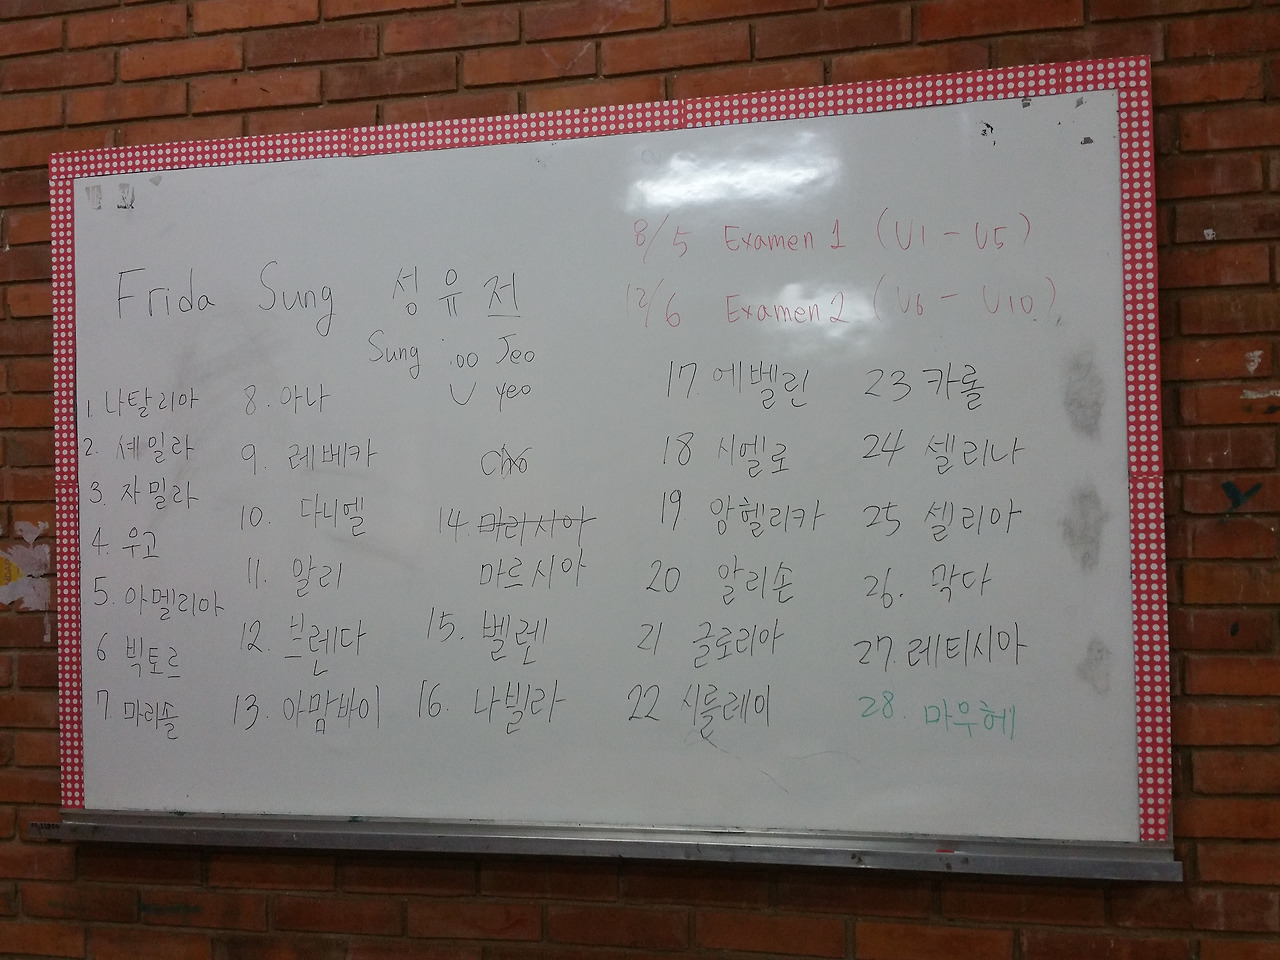 8/5 Examen 1 (U1 - U5)
12/6 Examen 2 (U6 - U10)
Frida Sung 성유저
Sung Joo Jeo
U yeo
cho
1. 나탈리아
2. 셰일라
3. 쟈밀라
4. 우고
5. 아멜리아
6 빅토르
7. 마리솔
8. 아나
9. 레베카
10. 다니엘
11. 알리
12. 브렌다
13. 아맘바이
14. 마리시아
마르시아
15. 벨렌
16. 나빌라
17. 에벨린
18 시엘로
19 앙헬리카
20 알리손
21 글로리아
22 시를레이
23 카롤
24 셀리나
25 셀리아
26. 막다
27. 레티시아
28. 마우헤